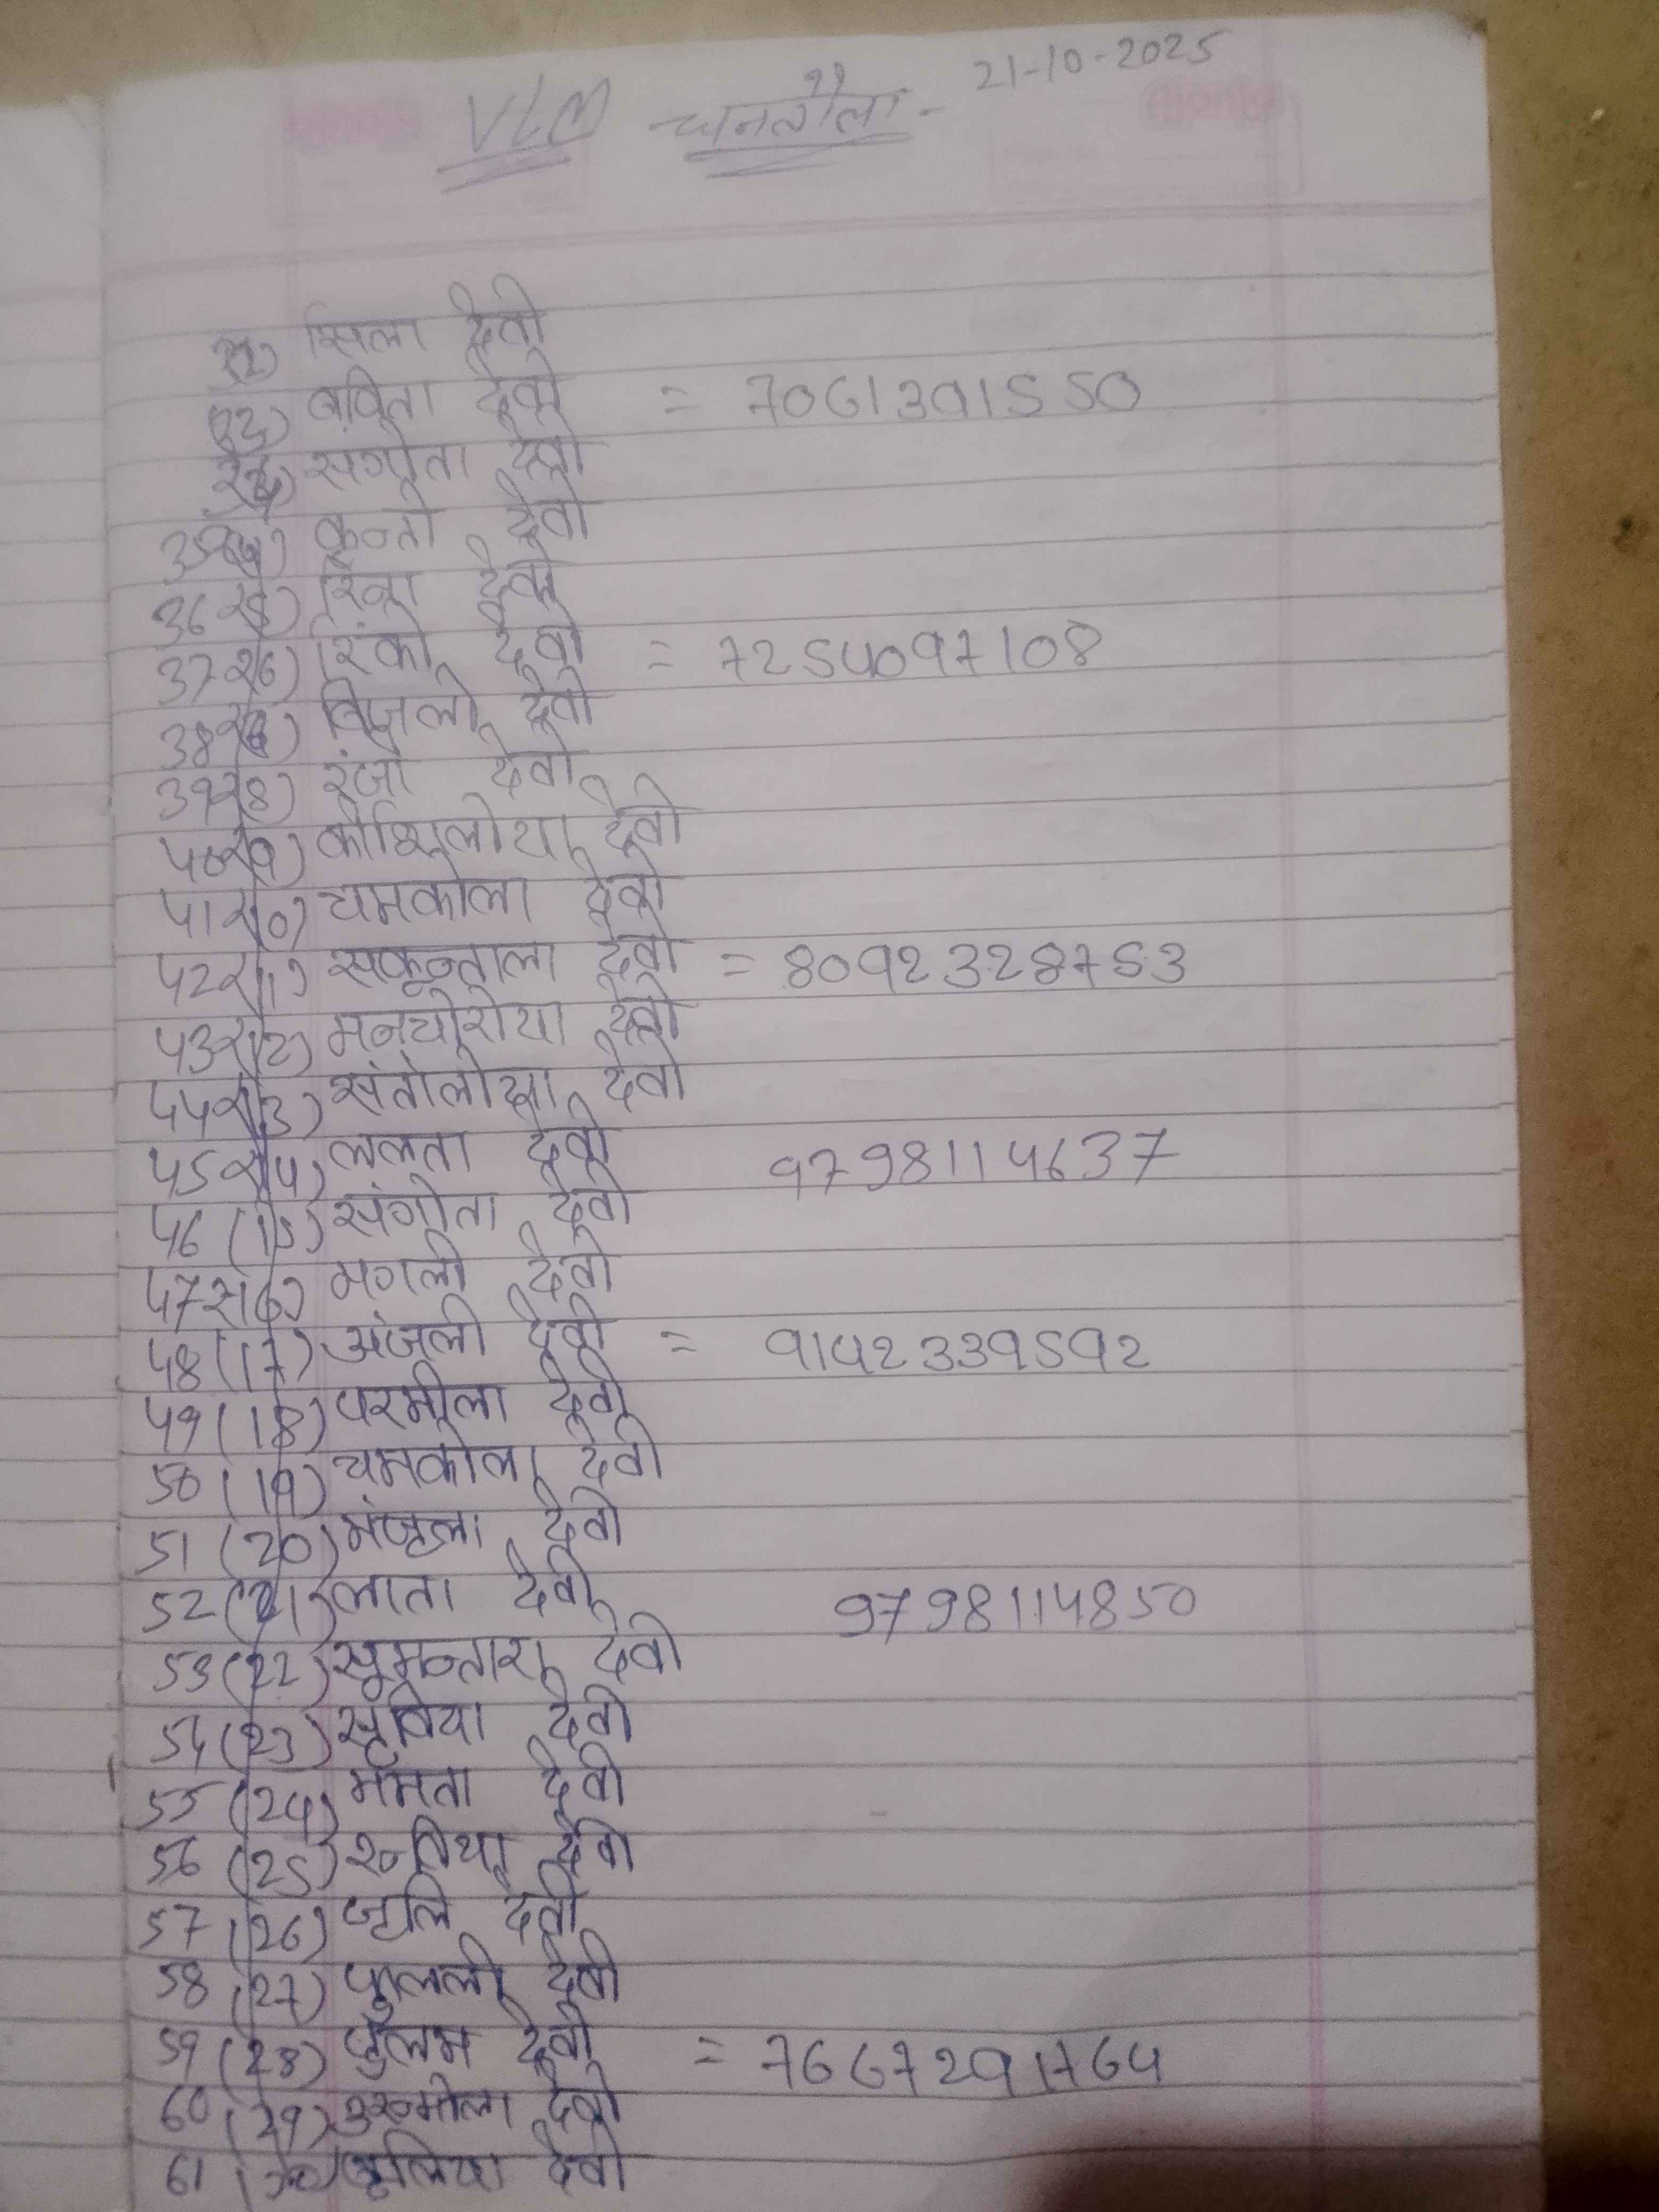 21-10-2025
VLM
सिला देवी
बबिता देवी = 7061391550
संगीता देवी
35 कुन्ती देवी
36 देवी
37 रिंकी देवी = 7254097108
38 बिजली देवी
39 रंजी देवी
40 कौशिलीया देवी
41 चमकीला देवी
42 सकून्तला देवी = 8092328753
43 मनचीरीया देवी
44 देवी
45 ललता देवी 9798114637
46 (15) संगीता देवी
47 मंगली देवी
48 (17) अंजली देवी = 9142339592
49 (18) परमीला देवी
50 (19) चमकीला देवी
51 (20) मंजुला देवी
52 (21) लाता देवी 9798114850
53 (22) सूमन्तारा देवी
54 (23) सूविया देवी
55 (24) ममता देवी
56 (25) देवी
57 (26) जुलि देवी
58 (27) देवी
59 (28) देवी = 7667291764
60 (29) देवी
61 देवी